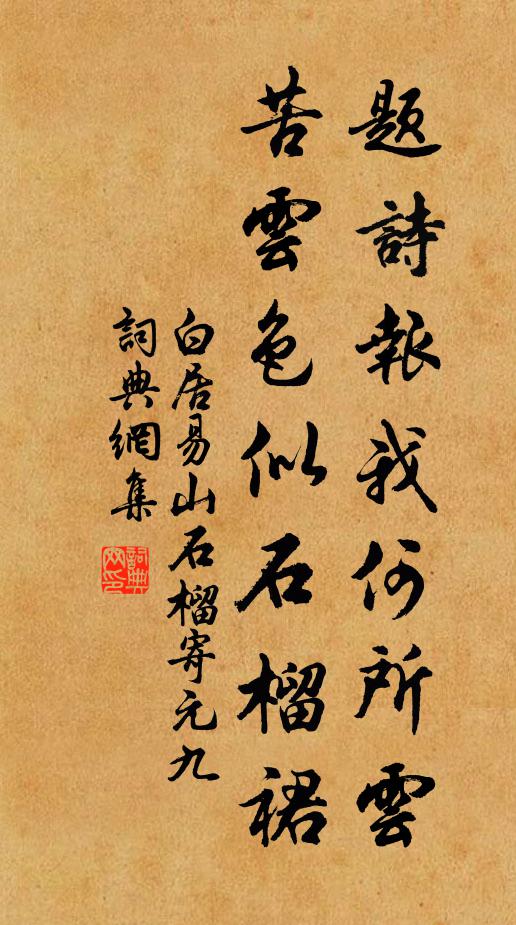 題詩報我何所雲
苦雲色似石榴裙
白居易山石榴寄元九
詞典網集
詞典網印